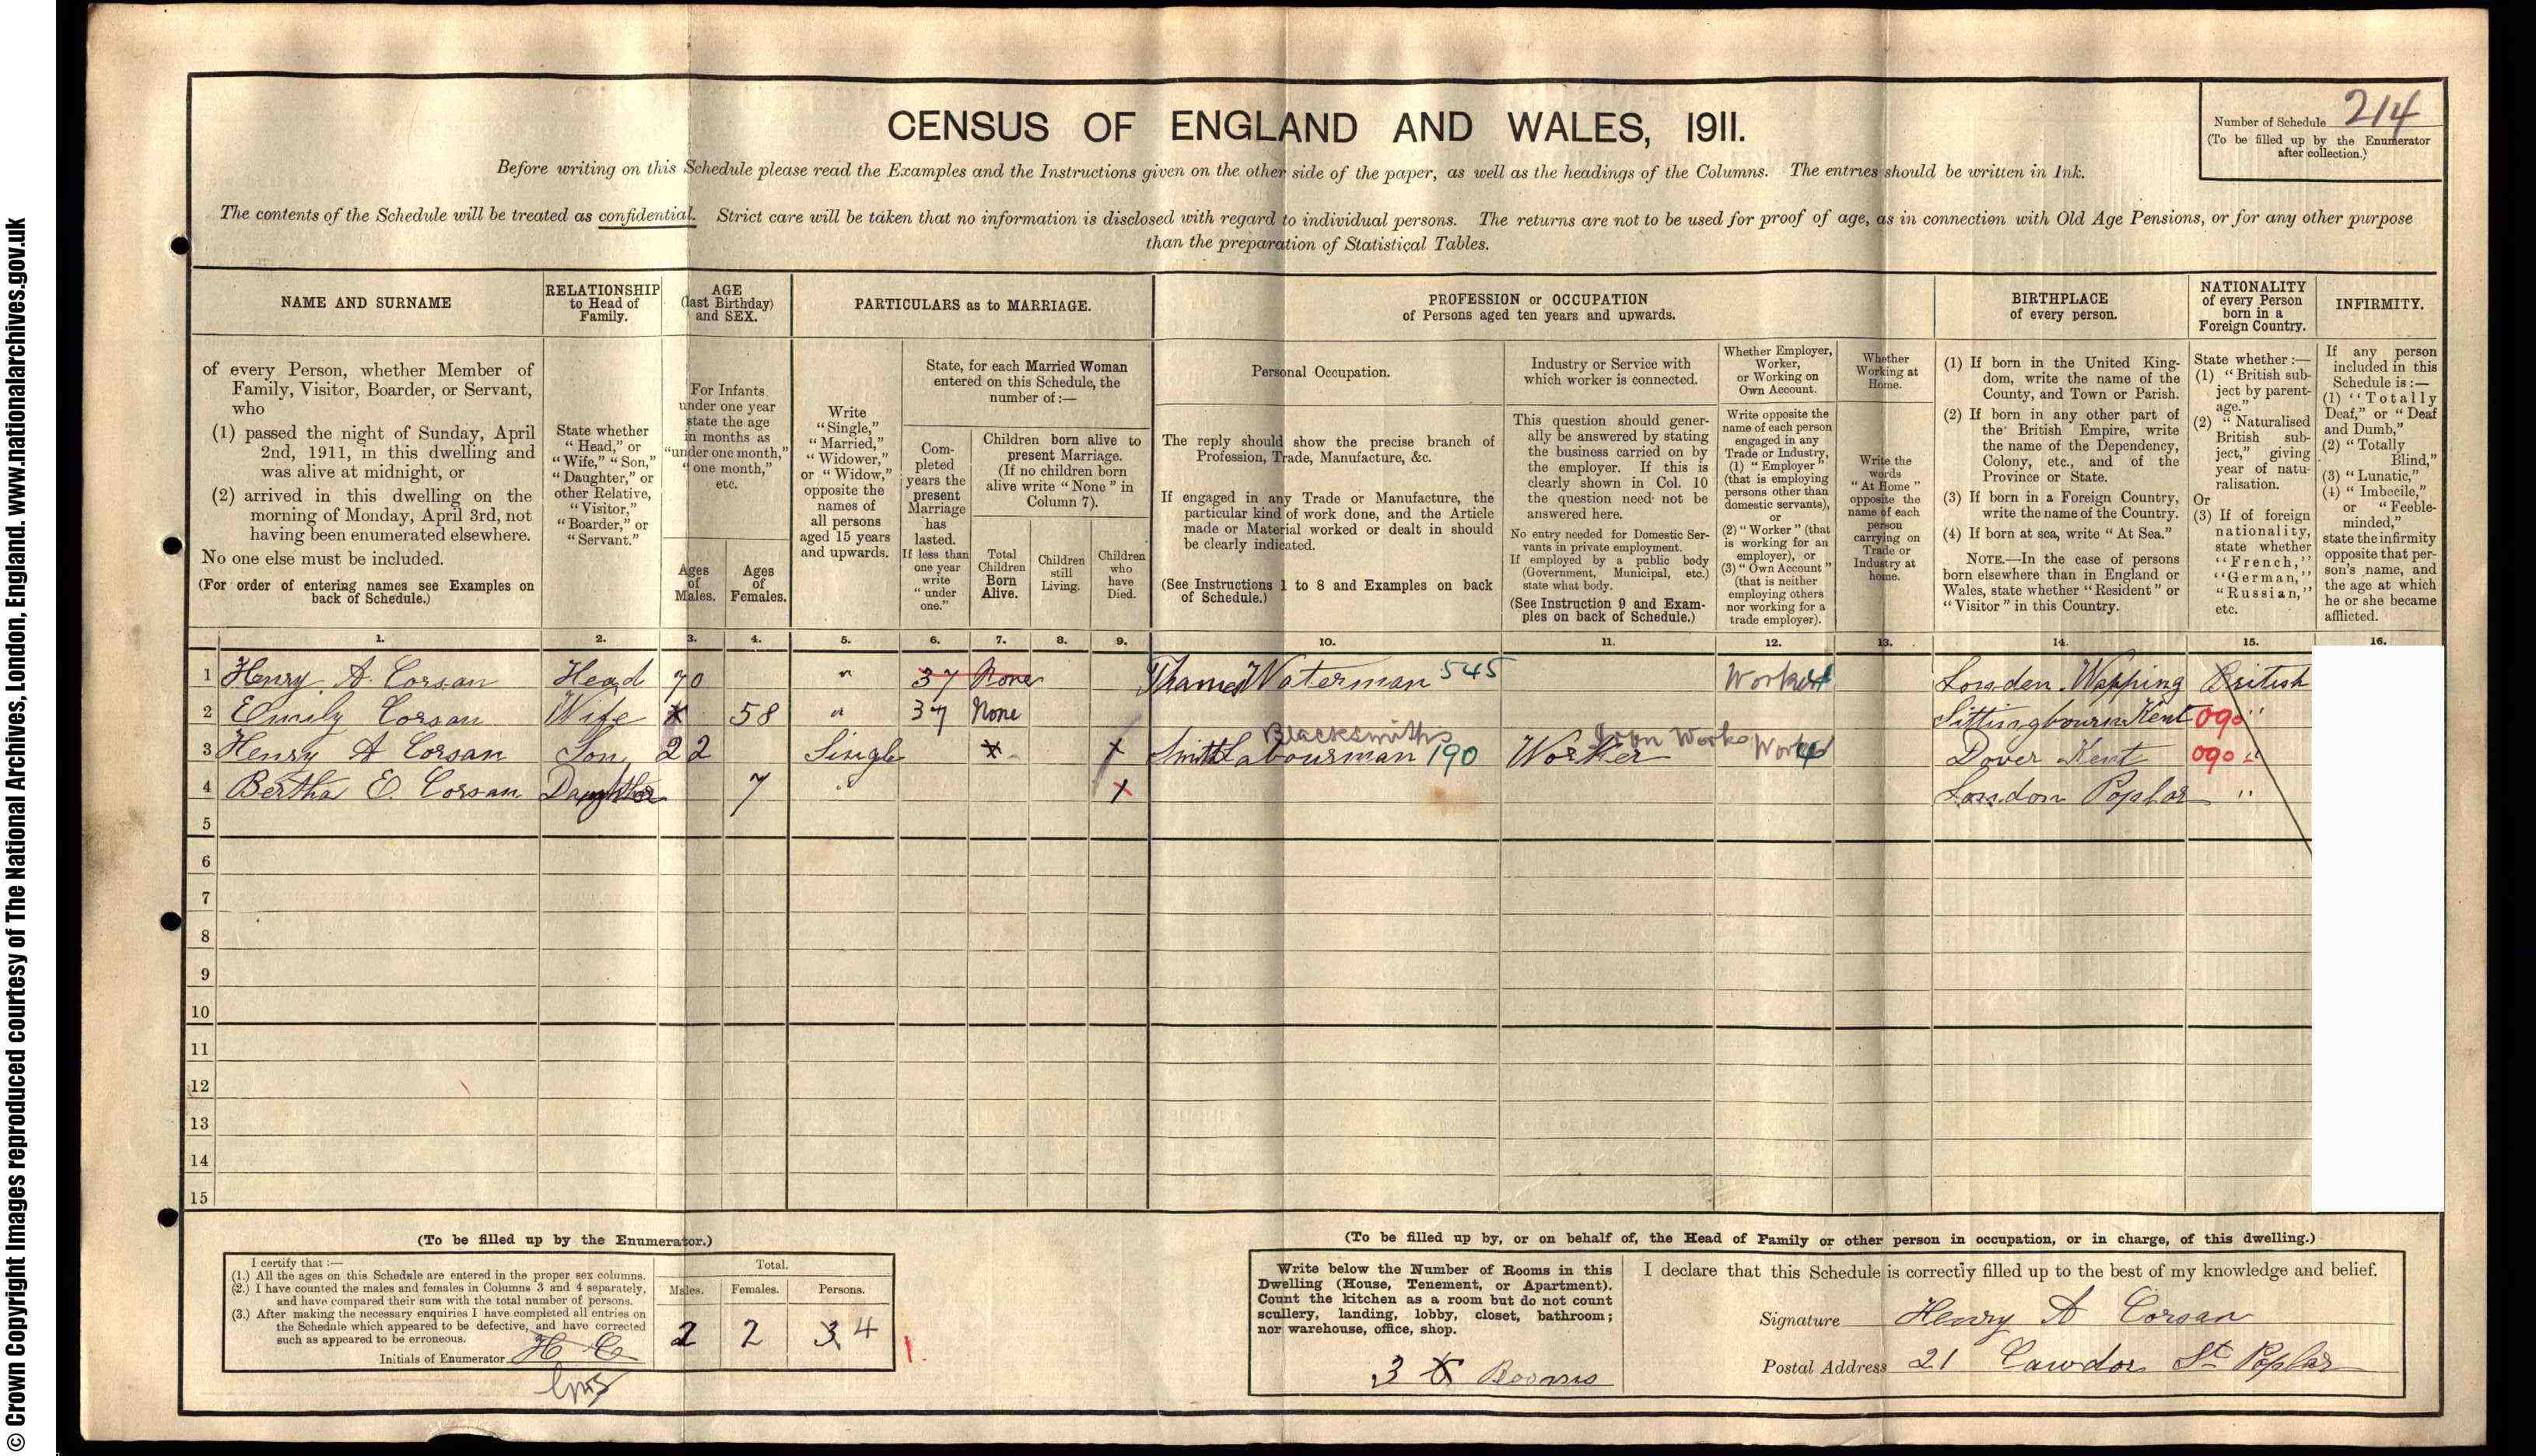 © Crown Copyright Images reproduced courtesy of The National Archives, London, England. www.nationalarchives.gov.uk
CENSUS OF ENGLAND AND WALES, 1911.
Number of Schedule 214
(To be filled up by the Enumerator
after collection.)
Before writing on this Schedule please read the Examples and the Instructions given on the other side of the paper, as well as the headings of the Columns. The entries should be written in Ink.
The contents of the Schedule will be treated as confidential. Strict care will be taken that no information is disclosed with regard to individual persons. The returns are not to be used for proof of age, as in connection with Old Age Pensions, or for any other purpose
than the preparation of Statistical Tables.
NAME AND SURNAME
of every Person, whether Member of
Family, Visitor, Boarder, or Servant,
who
(1) passed the night of Sunday, April
2nd, 1911, in this dwelling and
was alive at midnight, or
(2) arrived in this dwelling on the
morning of Monday, April 3rd, not
having been enumerated elsewhere.
No one else must be included.
(For order of entering names see Examples on
back of Schedule.)
RELATIONSHIP
to Head of
Family.
State whether
"Head," or
"Wife," "Son,"
"Daughter," or
other Relative,
"Visitor,"
"Boarder," or
"Servant."
AGE
(last Birthday)
and SEX.
For Infants
under one year
state the age
in months as
"under one month,"
"one month,"
etc.
Ages
of
Males.
Ages
of
Females.
PARTICULARS as to MARRIAGE.
Write
"Single,"
"Married,"
"Widower,"
or "Widow,"
opposite the
names of
all persons
aged 15 years
and upwards.
State, for each Married Woman
entered on this Schedule, the
number of:—
Com-
pleted
years the
present
Marriage
has
lasted.
If less than
one year
write
"under
one."
Children born alive to
present Marriage.
(If no children born
alive write "None" in
Column 7).
Total
Children
Born
Alive.
Children
still
Living.
Children
who
have
Died.
PROFESSION or OCCUPATION
of Persons aged ten years and upwards.
Personal Occupation.
The reply should show the precise branch of
Profession, Trade, Manufacture, &c.
If engaged in any Trade or Manufacture, the
particular kind of work done, and the Article
made or Material worked or dealt in should
be clearly indicated.
(See Instructions 1 to 8 and Examples on back
of Schedule.)
Industry or Service with
which worker is connected.
This question should gener-
ally be answered by stating
the business carried on by
the employer. If this is
clearly shown in Col. 10
the question need not be
answered here.
No entry needed for Domestic Ser-
vants in private employment.
If employed by a public body
(Government, Municipal, etc.)
state what body.
(See Instruction 9 and Exam-
ples on back of Schedule.)
Whether Employer,
Worker,
or Working on
Own Account.
Write opposite the
name of each person
engaged in any
Trade or Industry,
(1) "Employer"
(that is employing
persons other than
domestic servants),
or
(2) "Worker" (that
is working for an
employer), or
(3) "Own Account"
(that is neither
employing others
nor working for a
trade employer).
Whether
Working at
Home.
Write the
words
"At Home"
opposite the
name of each
person
carrying on
Trade or
Industry at
home.
BIRTHPLACE
of every person.
(1) If born in the United King-
dom, write the name of the
County, and Town or Parish.
(2) If born in any other part of
the British Empire, write
the name of the Dependency,
Colony, etc., and of the
Province or State.
(3) If born in a Foreign Country,
write the name of the Country.
(4) If born at sea, write "At Sea."
NOTE.—In the case of persons
born elsewhere than in England or
Wales, state whether "Resident" or
"Visitor" in this Country.
NATIONALITY
of every Person
born in a
Foreign Country.
State whether :—
(1) "British sub-
ject by parent-
age."
(2) "Naturalised
British sub-
ject," giving
year of natu-
ralisation.
Or
(3) If of foreign
nationality,
state whether
"French,"
"German,"
"Russian,"
etc.
INFIRMITY.
If any person
included in this
Schedule is :—
(1) "Totally
Deaf," or "Deaf
and Dumb,"
(2) "Totally
Blind,"
(3) "Lunatic,"
(4) "Imbecile,"
or "Feeble-
minded,"
state the infirmity
opposite that per-
son's name, and
the age at which
he or she became
afflicted.
1. 2. 3. 4. 5. 6. 7. 8. 9. 10. 11. 12. 13. 14. 15. 16.
1 Henry A. Corsan Head 70 " 37 None Thames Waterman 545 Worker London Wapping British
2 Emily Corsan Wife 58 " 37 None Sittingbourn Kent 090 "
Blacksmiths Iron Works
3 Henry A Corsan Son 22 Single Smith Labourman 190 Worker Worker Dover Kent 090 "
4 Bertha E. Corsan Daughter 7 " London Poplar "
5
6
7
8
9
10
11
12
13
14
15
(To be filled up by the Enumerator.)
I certify that :—
(1.) All the ages on this Schedule are entered in the proper sex columns.
(2.) I have counted the males and females in Columns 3 and 4 separately,
and have compared their sum with the total number of persons.
(3.) After making the necessary enquiries I have completed all entries on
the Schedule which appeared to be defective, and have corrected
such as appeared to be erroneous.
Initials of Enumerator H C
Total.
Males. Females. Persons.
2 2 3 4
1.
(To be filled up by, or on behalf of, the Head of Family or other person in occupation, or in charge, of this dwelling.)
Write below the Number of Rooms in this
Dwelling (House, Tenement, or Apartment).
Count the kitchen as a room but do not count
scullery, landing, lobby, closet, bathroom;
nor warehouse, office, shop.
3 Rooms
I declare that this Schedule is correctly filled up to the best of my knowledge and belief.
Signature Henry A Corsan
Postal Address 21 Cawdor St Poplar